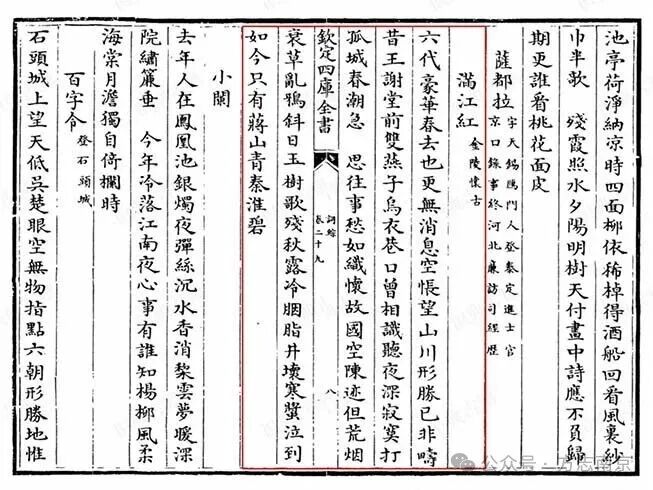 池亭荷淨納涼時四面柳依稀棹得酒船回看風裏紗
巾半欹　殘霞照水夕陽明樹天付畫中詩應不負歸
期更誰看桃花面皮
薩都拉 字天錫鴈門人登泰定進士官
京口錄事終河北廉訪司經歷
滿江紅 金陵懷古
六代豪華春去也更無消息空悵望山川形勝已非疇
昔王謝堂前雙燕子烏衣巷口曾相識聽夜深寂寞打
孤城春潮急　思往事愁如織懷故國空陳迹但荒烟
欽定四庫全書
詞綜
卷二十九
八
衰草亂鴉斜日玉樹歌殘秋露冷胭脂井壞寒螿泣到
如今只有蔣山青秦淮碧
小闌
去年人在鳳凰池銀燭夜彈絲沉水香消棃雲夢暖深
院繡簾垂　今年冷落江南夜心事有誰知楊柳風柔
海棠月澹獨自倚欄時
百字令 登石頭城
石頭城上望天低吳楚眼空無物指點六朝形勝地惟
公众号·方志南京